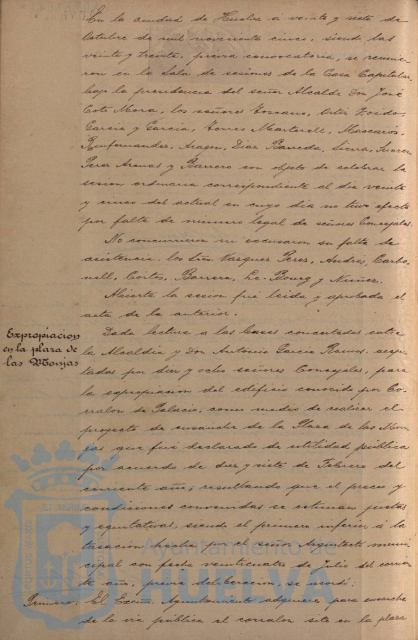 En la ciudad de Huelva a veinte y siete de
Octubre de mil novecientos cinco, siendo las
veinte y treinta, previa convocatoria, se reunie-
ron en la Sala de sesiones de la Casa Capitular
bajo la presidencia del señor Alcalde Don José
Coto Mora, los señores Oliden,
Garcia y Garcia, Torres Martorell, Mascarós,
Aragon, Diaz Barreda, Sierra, Suarez
Perez Arenas y Barrero con objeto de celebrar la
sesion ordinaria correspondiente al dia veinte
y cinco del actual en cuyo dia no tuvo efecto
por falta de número legal de señores Concejales.
No concurrieron ni escusaron su falta de
asistencia los Sres Vazquez Perez, Andrés, Carbo-
nell, Cortes, Barrera, Le Bourg y Nuñez.
Abierta la sesion fué leida y aprobada el
acta de la anterior.
Expropiacion
en la plaza de
las Monjas
Dada lectura a las bases concertadas entre
la Alcaldia y Don Antonio Garcia Ramos, acep-
tadas por diez y ocho señores Concejales, para
la expropiacion del edificio conocido por Co-
rralon de Palacio, como medio de realizar el
proyecto de ensanche de la Plaza de las Mon-
jas que fué declarado de utilidad pública
por acuerdo de diez y siete de Febrero del
corriente año; resultando que el precio y
condiciones convenidas se estiman justas
y equitativas, siendo el primero inferior á la
tasacion hecha por el señor Arquitecto muni-
cipal con fecha veinticuatro de Julio del corrien-
te año, previa deliberacion, se acordó:
Primero: El Excmo. Ayuntamiento adquiere para ensanche
de la via pública el corralon sito en la plaza
Ayuntamiento de
HUELVA